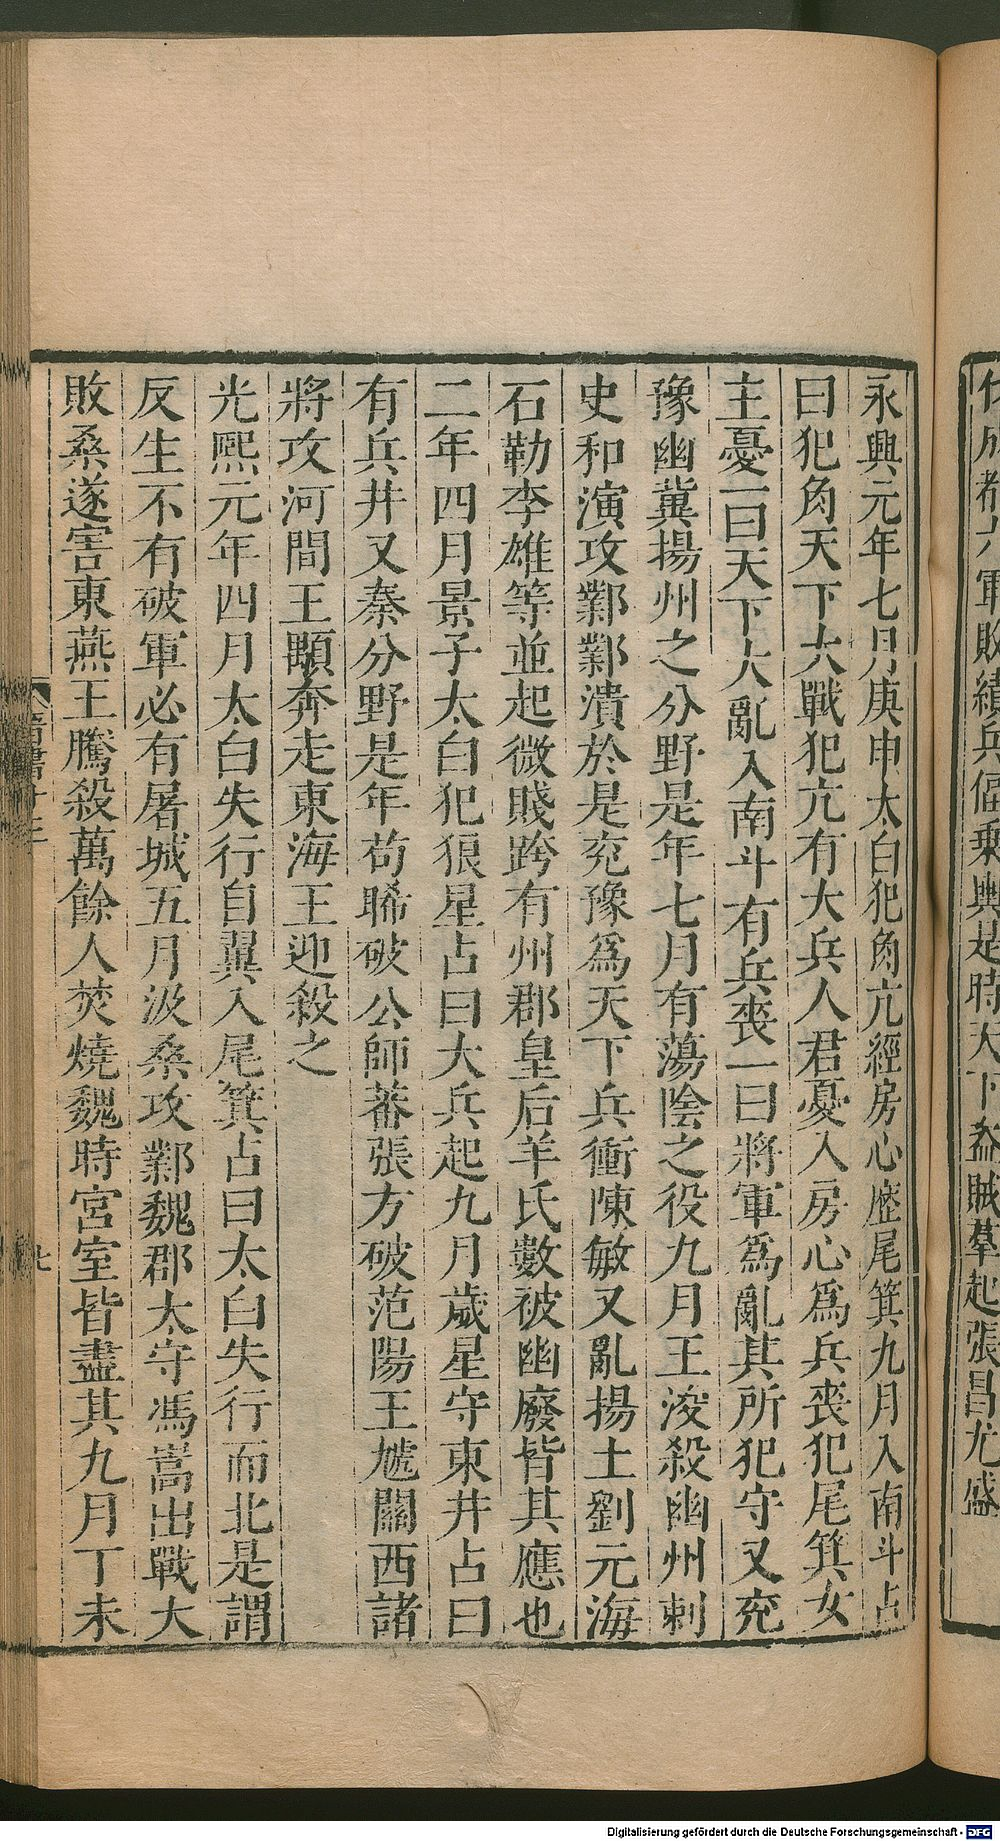 仵成都六軍敗績兵偪乗輿是時天下盗賊羣起張昌尤盛
永興元年七月庚申太白犯角亢經房心歷尾箕九月入南斗占
曰犯角天下大戰犯亢有大兵人君憂入房心爲兵喪犯尾箕女
主憂一曰天下大亂入南斗有兵喪一曰將軍爲亂其所犯守又兖
豫幽冀揚州之分野是年七月有蕩陰之役九月王浚殺幽州刺
史和演攻鄴鄴潰於是兖豫爲天下兵衝陳敏又亂揚土劉元海
石勒李雄等並起微賤跨有州郡皇后羊氏數被幽廢皆其應也
二年四月景子太白犯狼星占曰大兵起九月歲星守東井占曰
有兵井又秦分野是年苟晞破公師蕃張方破范陽王虓關西諸
將攻河間王顒奔走東海王迎殺之
光熙元年四月太白失行自翼入尾箕占曰太白失行而北是謂
反生不有破軍必有屠城五月汲桑攻鄴魏郡太守馮嵩出戰大
敗桑遂害東燕王騰殺萬餘人焚燒魏時宮室皆盡其九月丁未
晉書十三
七
Digitalisierung gefördert durch die Deutsche Forschungsgemeinschaft - DFG